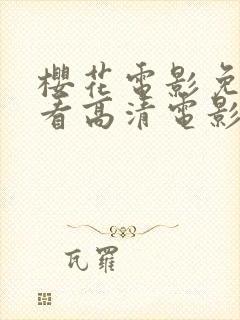 櫻花電影免
看高清電影
瓦羅